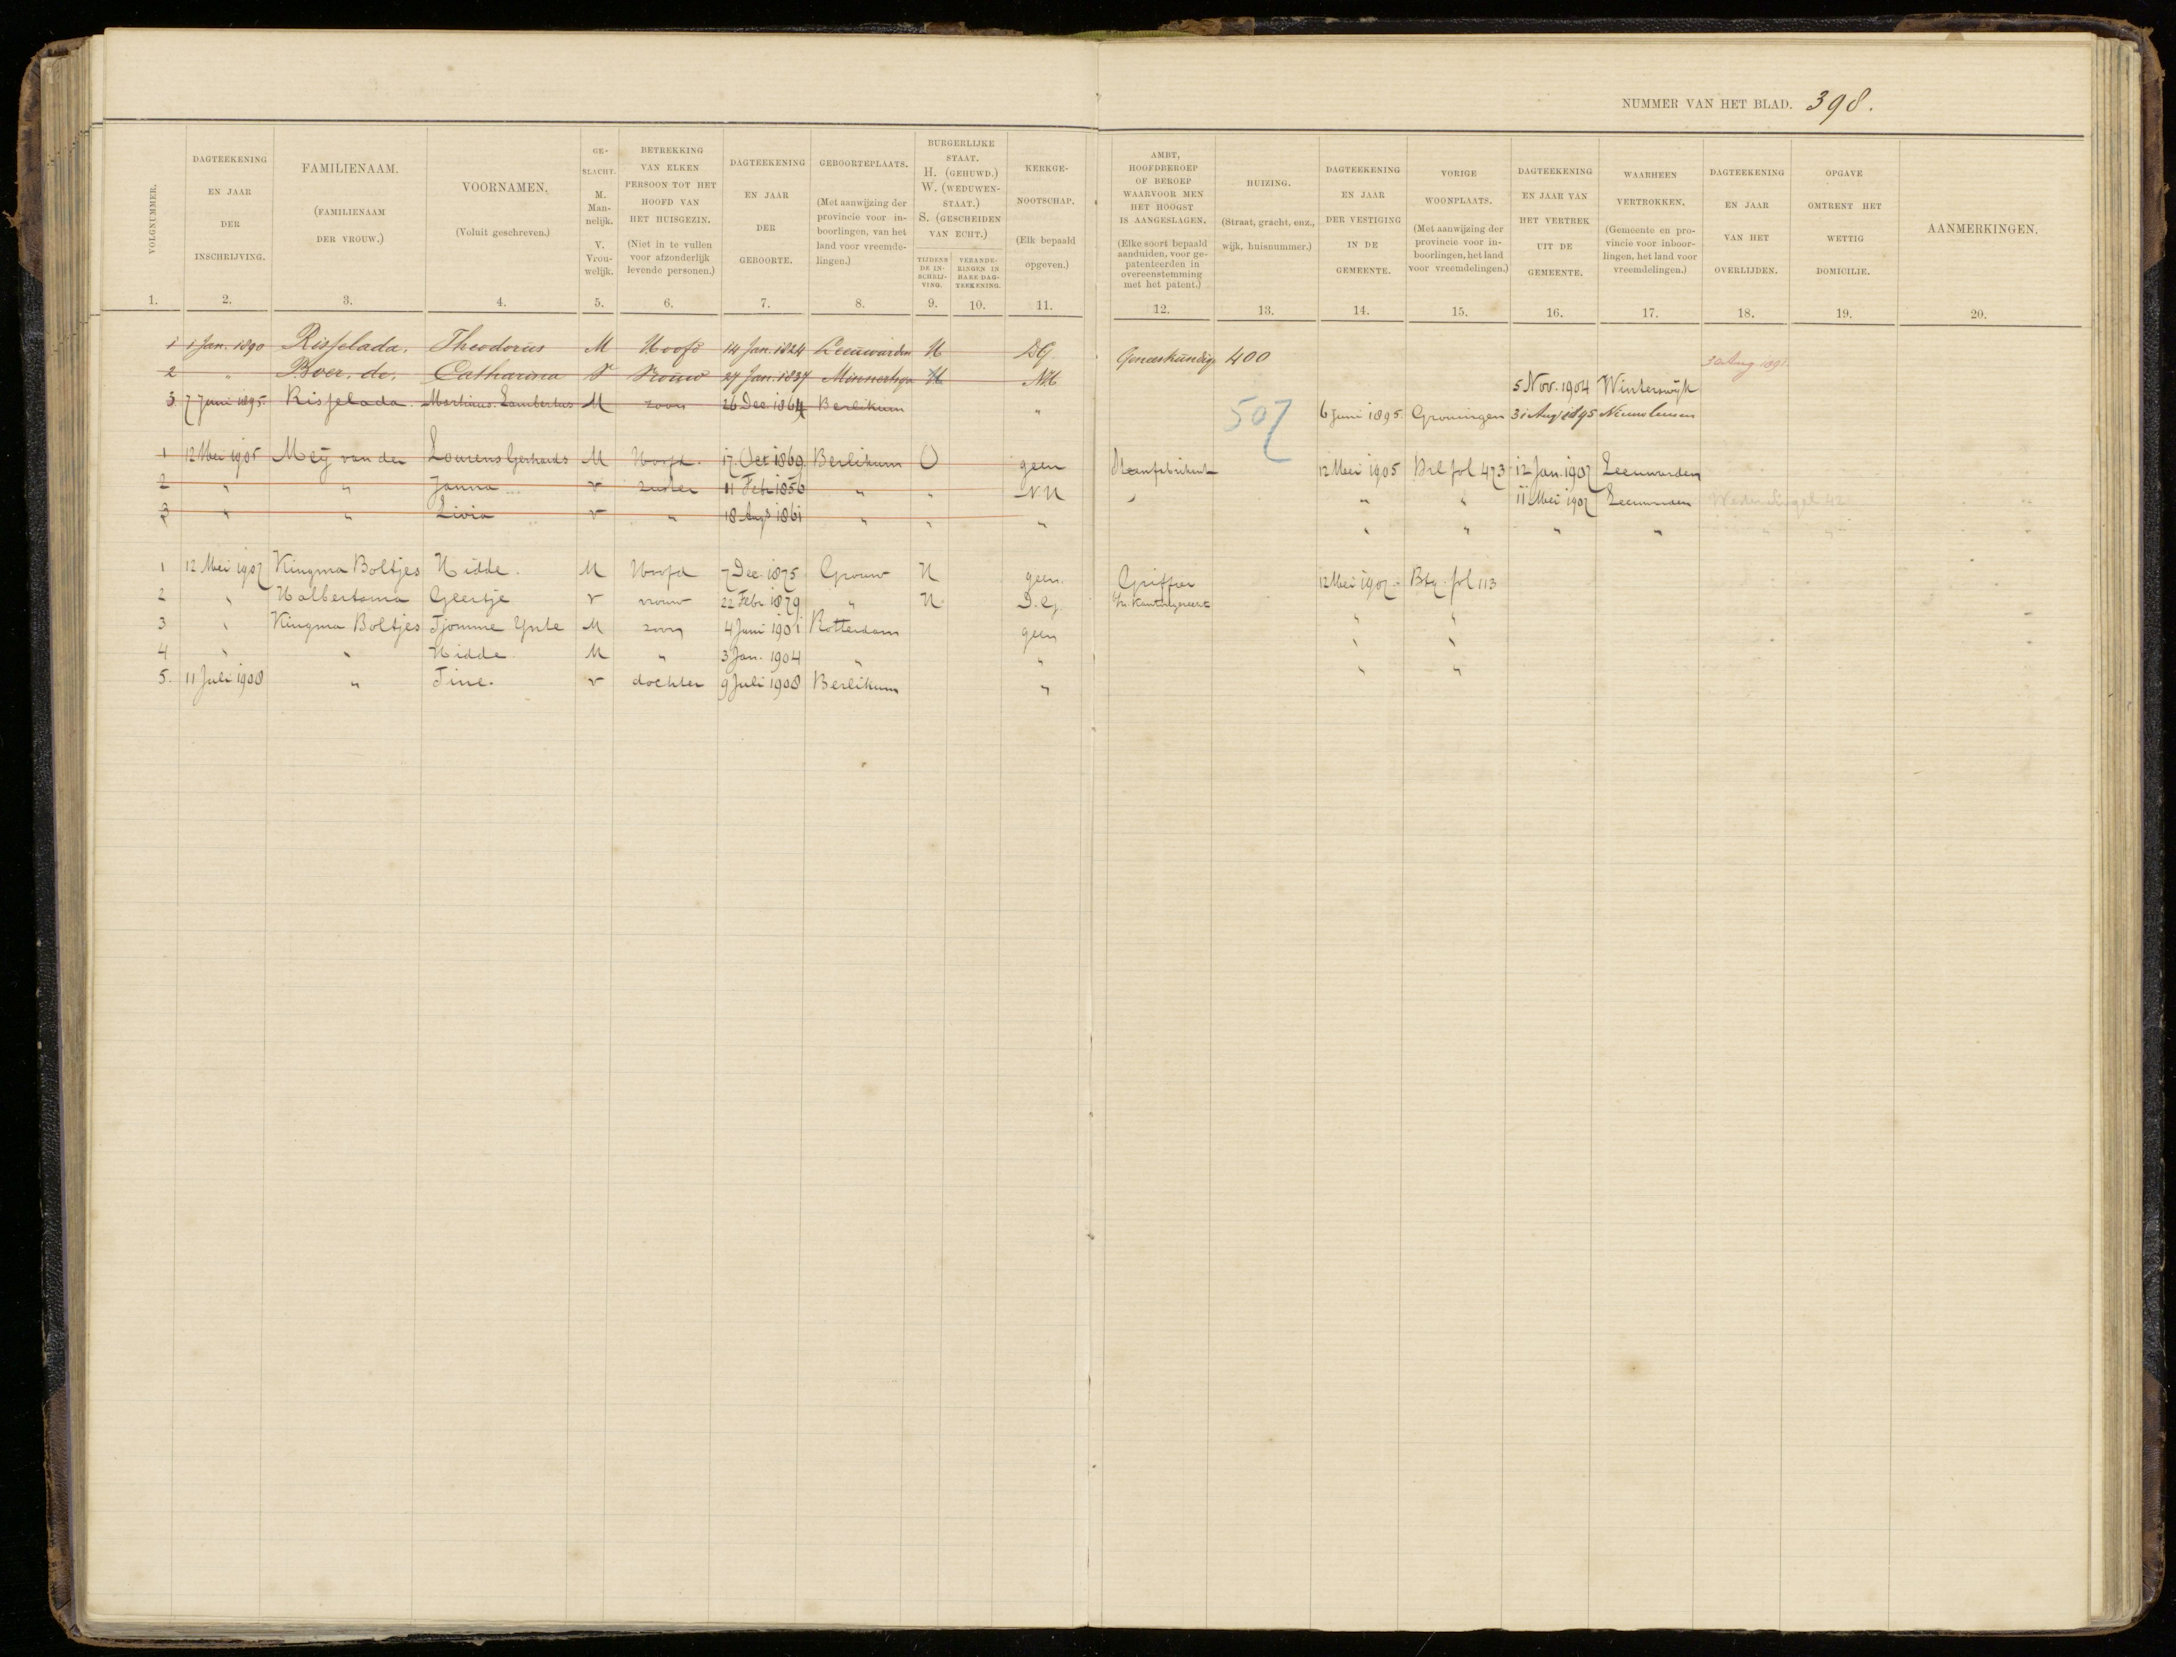 NUMMER VAN HET BLAD. 398.
VOLGNUMMER. 1.
DAGTEEKENING EN JAAR DER INSCHRIJVING. 2.
FAMILIENAAM. (FAMILIENAAM DER VROUW.) 3.
VOORNAMEN. (Voluit geschreven.) 4.
GE-SLACHT. M. Man-nelijk. V. Vrou-welijk. 5.
BETREKKING VAN ELKEN PERSOON TOT HET HOOFD VAN HET HUISGEZIN. (Niet in te vullen voor afzonderlijk levende personen.) 6.
DAGTEEKENING EN JAAR DER GEBOORTE. 7.
GEBOORTEPLAATS. (Met aanwijzing der provincie voor in-boorlingen, van het land voor vreemde-lingen.) 8.
BURGERLIJKE STAAT. H. (GEHUWD.) W. (WEDUWEN-STAAT.) S. (GESCHEIDEN VAN ECHT.)
TIJDENS DE IN-SCHRIJ-VING. 9.
VERANDE-RINGEN IN HARE DAG-TEEKENING. 10.
KERKGE-NOOTSCHAP. (Elk bepaald opgeven.) 11.
AMBT, HOOFDBEROEP OF BEROEP WAARVOOR MEN HET HOOGST IS AANGESLAGEN. (Elke soort bepaald aanduiden, voor ge-patenteerden in overeenstemming met het patent.) 12.
HUIZING. (Straat, gracht, enz., wijk, huisnummer.) 13.
DAGTEEKENING EN JAAR DER VESTIGING IN DE GEMEENTE. 14.
VORIGE WOONPLAATS. (Met aanwijzing der provincie voor in-boorlingen, het land voor vreemdelingen.) 15.
DAGTEEKENING EN JAAR VAN HET VERTREK UIT DE GEMEENTE. 16.
WAARHEEN VERTROKKEN. (Gemeente en pro-vincie voor inboor-lingen, het land voor vreemdelingen.) 17.
DAGTEEKENING EN JAAR VAN HET OVERLIJDEN. 18.
OPGAVE OMTRENT HET WETTIG DOMICILIE. 19.
AANMERKINGEN. 20.
1 1 Jan. 1890 Risselada. Theodorus M Hoofd 14 Jan. 1824 Leeuwarden H DG Geneeskundige 400 30 Aug 1891.
2 " Boer, de. Catharina V Vrouw 27 Jan. 1837 Minnertsga H NH 5 Nov. 1904 Winterswijk
3. 7 Juni 1895. Risselada. Martinus Lambertus M zoon 26 Dec. 1864 Berlikum " 507 6 Juni 1895. Groningen 31 Aug 1895 Nieuwleusen
1 12 Mei 1905 Meij van der Lourens Gerhards M Hoofd. 17 Oct 1869 Berlikum O geen Steenfabrikant 12 Mei 1905 fol 473 12 Jan. 1907 Leeuwarden
2 " " Janna V zuster 11 Feb 1856 " " NH " " " 11 Mei 1907 Leeuwarden
3 " " Livia V " 18 Aug 1861 " " " " " " "
1 12 Mei 1907 Kingma Boltjes Hidde. M Hoofd 7 Dec. 1875 Grouw H geen. Griffier 12 Mei 1907. Btz. fol 113
2 " Halbertsma Geertje V vrouw 22 Febr. 1879 " H D.G. Kantongerecht " "
3 " Kingma Boltjes Tjomme Ynte M zoon 4 Juni 1901 Rotterdam geen " "
4 " " Hidde. M " 3 Jan. 1904 " " " "
5. 11 Juli 1908 " Tine. V dochter 9 Juli 1908 Berlikum "